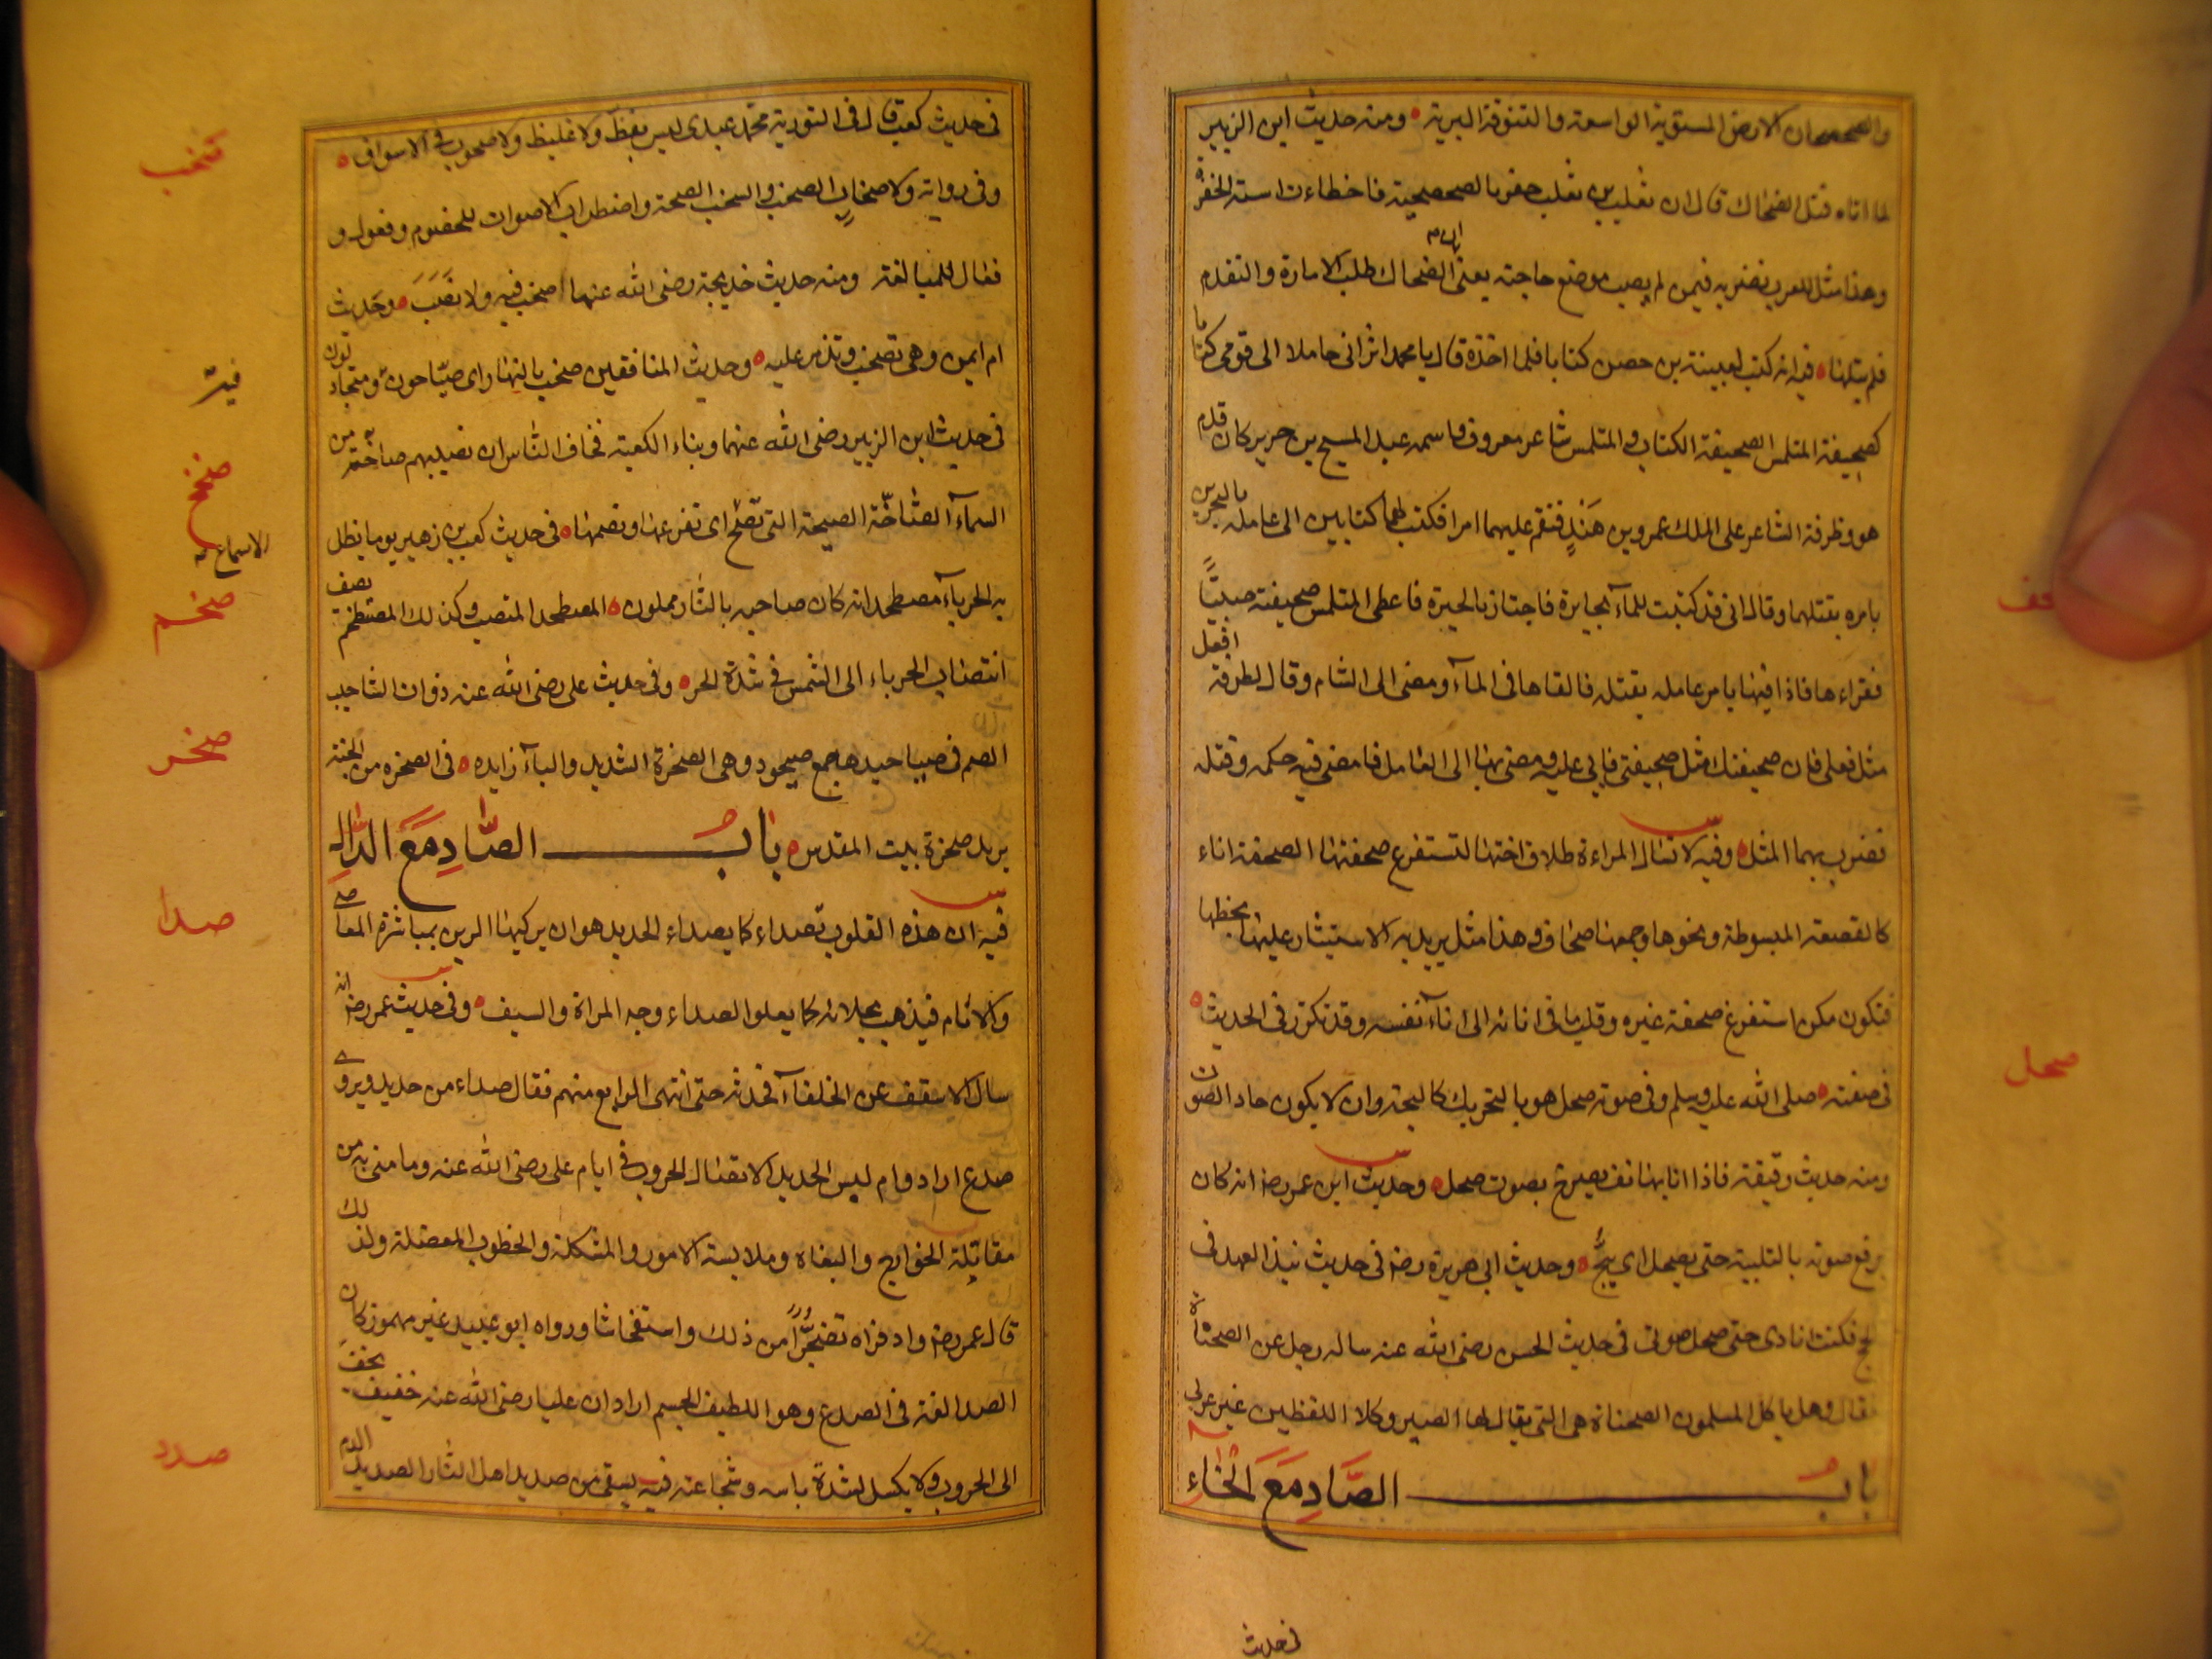 والصحصحان الارض المستوية الواسعة والتنوفة البرية ومنه حديث ابن الزبير
لما اتاه قتل الضحاك قال ان ثعلب بن ثعلب حفر بالصحصحة فاخطاءت استه الحفرة
وهذا مثل للعرب تضربه فيمن لم يصب موضع حاجته يعنى ان الضحاك طلب الامارة والتقدم
فلم ينلها فيه انه كتب لعيينة بن حصن كتابا فلما اخذه قال يا محمد اترانى حاملا الى قومى كتابا
كصحيفة المتلمس الصحيفة الكتاب والمتلمس شاعر معروف واسمه عبد المسيح بن جرير كان قدم
هو وطرفة الشاعر على الملك عمرو بن هند فنقم عليهما امرا فكتب لهما كتابين الى عامله بالبحرين
يامره بقتلهما وقال انى قد كتبت لكما بجايزة فاجتازا بالحيرة فاعطى المتلمس صحيفته صبيا
فقراءها فاذا فيها يامر عامله بقتله فالقاها فى الماء ومضى الى الشام وقال لطرفة افعل
مثل فعلى فان صحيفتك مثل صحيفتى فابى عليه ومضى بها الى العامل فامضى فيه حكمه وقتله
تضرب بهما المثل وفيه لا تسال المراءة طلاق اختها لتستفرغ صحفتها الصحفة اناء
كالقصعة المبسوطة ونحوها وجمعها صحاف وهذا مثل يريد به الاستيثار عليها بحظها
فتكون كمن استفرغ صحفة غيره وقلب ما فى انائه الى اناء نفسه وقد تكرر فى الحديث
فى صفته صلى الله عليه وسلم وفى صوته صحل هو بالتحريك كالبحة وان لا يكون حاد الصوت
ومنه حديث رقيقة فاذا انا بهاتف يصرخ بصوت صحل وحديث ابن عمر رضه انه كان
يرفع صوته بالتلبية حتى يصحل اى يبح وحديث ابى هريرة رضه فى حديث نبذ العهد فى
الحج فكنت انادى حتى صحل صوتى فى حديث الحسن رضى الله عنه ساله رجل عن الصحناة
فقال وهل ياكل المسلمون الصحناة هى التى يقال لها الصير وكلا اللفظين غير عربى
باب الصاد مع الخاء
فى حديث
حف
صحل
فى حديث كعب قال فى التورية محمد عبدى ليس بفظ ولا غليظ ولا صخوب فى الاسواق
وفى رواية ولا صخاب الصخب والسخب الصيحة واضطراب الاصوات للخصوم وفعول و
فعال للمبالغة ومنه حديث خديجة رضى الله عنها لا صخب فيه ولا نصب وحديث
ام ايمن وهى تصخب وتذمر عليه وحديث المنافقين صخب بالنهار اى صياحون ومتجادلون
فى حديث ابن الزبير رضى الله عنهما وبناء الكعبة فخاف الناس ان تصيبهم صاخة من
السماء الصاخة الصيحة التى تصخ اى تقرعها وتصمها فى حديث كعب بن زهير يوما يظل
به الحرباء مصطخدا كان صاحيه بالنار مملول المصطخد المنتصب وكذلك المصطخم يصف
انتصاب الحرباء الى الشمس فى شدة الحر وفى حديث على رضى الله عنه ذوات الشناخيب
الصم فى صياخيدها جمع صيخود وهى الصخرة الشديد والياء زايده فى الصخره من الجنة
يريد صخرة بيت المقدس باب الصاد مع الدال
فيه ان هذه القلوب تصداء كما يصداء الحديد هو ان يركبها الرين بمباشرة المعاصى
والاثام فيذهب بجلائه كما يعلو الصداء وجه المراة والسيف وفى حديث عمر رضه انه
سال الاسقف عن الخلفاء فحدثه حتى انتهى الى الرابع منهم فقال صداء من حديد ويروى
صدع اراد دوام لبس الحديد لاتصال الحروب فى ايام على رضى الله عنه وما منى به من
مقاتلة الخوارج والبغاه وملابسة الامور المشكلة والخطوب المعضلة ولذلك
قال عمر رضه وادفراه تضجرا من ذلك واستفحاشا ورواه ابو عبيد غير مهموز كان
الصدا لغة فى الصدع وهو اللطيف الجسم اراد ان عليا رضى الله عنه خفيف يخف
الى الحروب ولا يكسل لشدة باسه وشجاعته فيه يسقى من صديد اهل النار الصديد الدم
صخب
صخخ
الاسماع صه
صخم
صخر
صدا
صدد